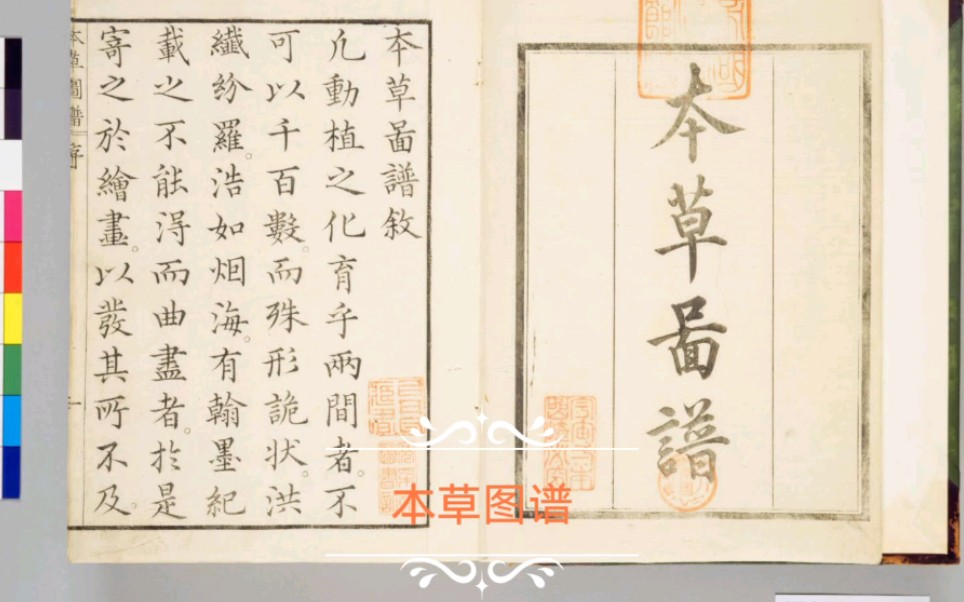 本草啚譜
本草啚譜敘
凢動植之化育乎兩間者。不
可以千百數。而殊形詭状。洪
纖紛羅。浩如烟海。有翰墨紀
載之不能淂而曲盡者。於是
寄之於繪畫。以發其所不及。
本草圖譜 序
一
本草图谱